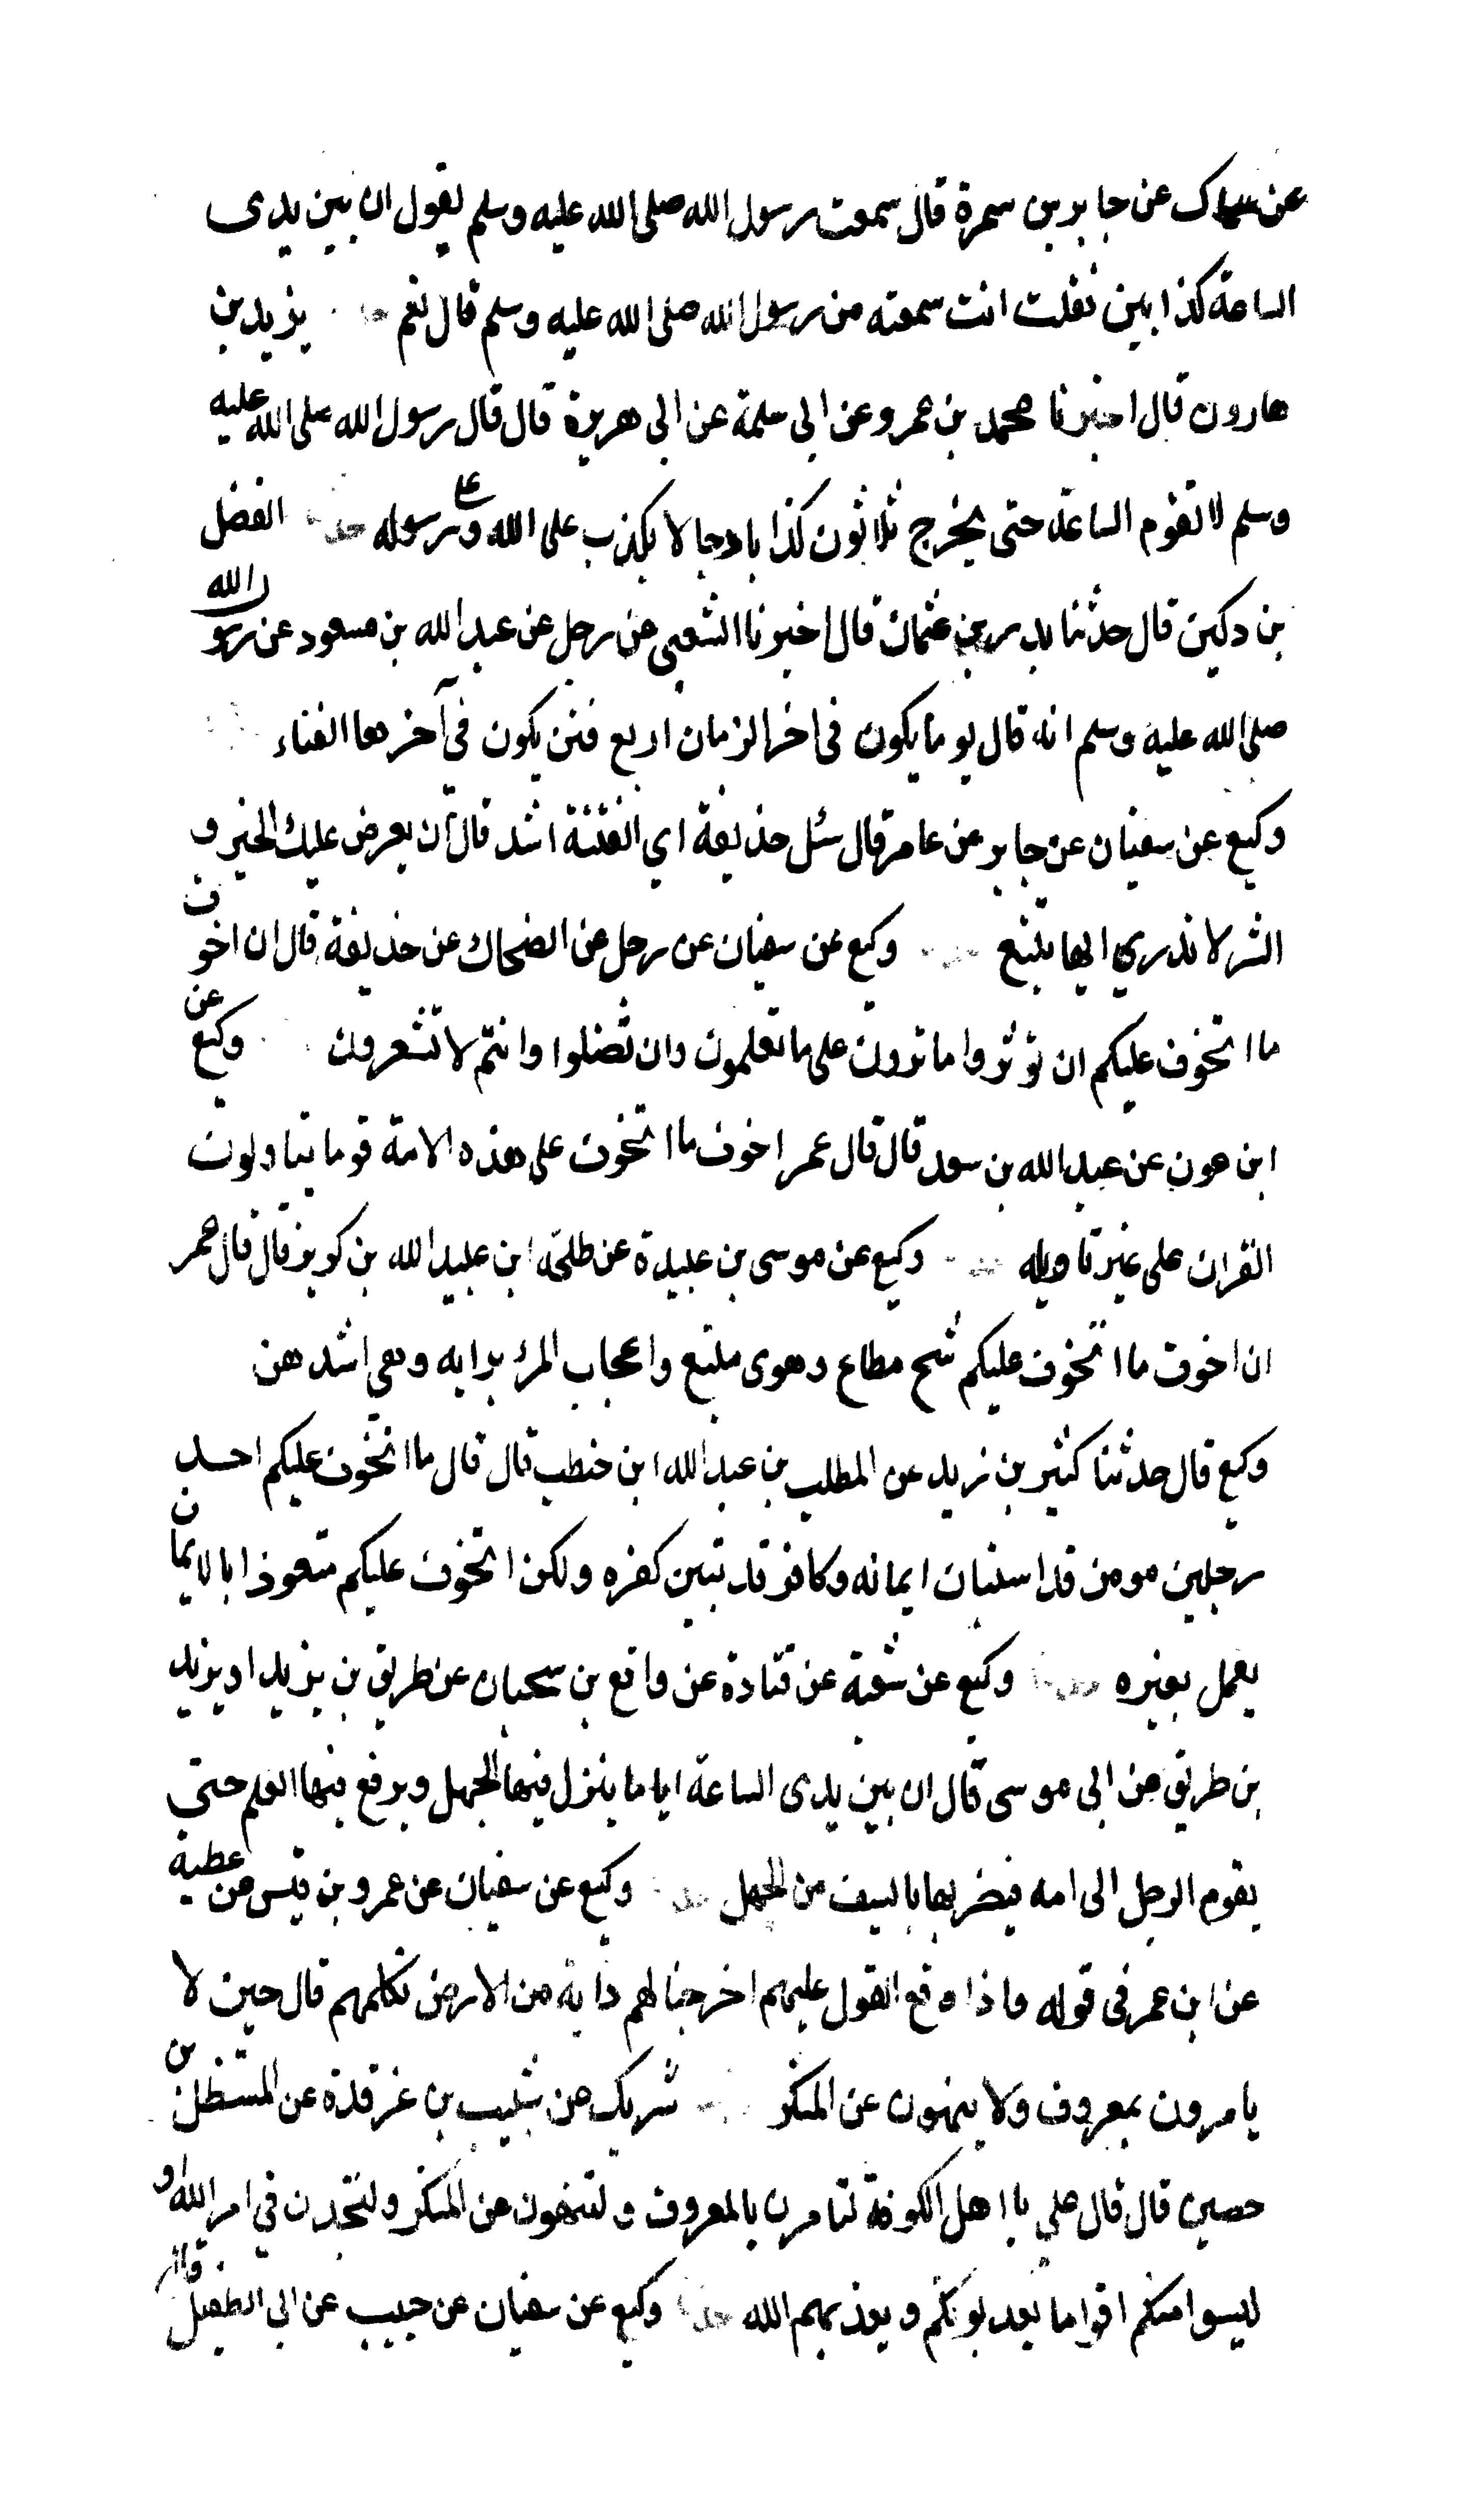 عن سماك عن جابر بن سمرة قال سمعت رسول الله صلى الله عليه وسلم يقول ان بين يدى
الساعة كذابين فقلت انت سمعته من رسول الله صلى الله عليه وسلم قال نعم يزيد بن
هارون قال اخبرنا محمد بن عمرو عن ابى سلمة عن ابى هريرة قال قال رسول الله صلى الله عليه
وسلم لا تقوم الساعة حتى يخرج ثلاثون كذابا دجالا يكذب على الله وعلى رسوله حدثنا الفضل
بن دكين قال حدثنا بدر بن عثمان قال اخبرنا الشعبي عن رجل عن عبد الله بن مسعود عن رسول الله
صلى الله عليه وسلم انه قال يوما يكون فى اخر الزمان اربع فتن يكون في آخرها الفناء
وكيع عن سفيان عن جابر عن عامر قال سئل حذيفة اي الفتنة اشد قال أن يعرض عليك الخير و
الشر لا تدري ايها تتبع وكيع عن سفيان عن رجل عن الضحاك عن حذيفة قال ان اخوف
ما اتخوف عليكم ان تؤثروا ما ترون على ما تعلمون وان تضلوا وانتم لا تشعرون وكيع عن
ابن عون عن عبد الله بن سعد قال قال عمر اخوف ما اتخوف على هذه الامة قوما يتاولون
القران على غير تاويله وكيع عن موسى بن عبيدة عن طلحة ابن عبيد الله بن كريز قال قال عمر
ان اخوف ما اتخوف عليكم شح مطاع وهوى متبع واعجاب المرء برايه وهي اشدهن
وكيع قال حدثنا كثير بن زيد عن المطلب بن عبد الله ابن حنطب قال قال ما اتخوف عليكم احد
رجلين مومن قد استبان ايمانه وكافر قد تبين كفره ولكن اتخوف عليكم متعوذا بالايمان
يعمل بغيره حدثنا وكيع عن شعبة عن قتادة عن واقع بن سحبان عن طريق بن يزيد او يزيد
بن طريق عن ابى موسى قال ان بين يدى الساعة اياما ينزل فيها الجهل ويرفع فيها العلم حتى
يقوم الرجل الى امه فيضربها بالسيف من الجهل وكيع عن سفيان عن عمرو بن قيس عن عطية
عن ابن عمر فى قوله واذا وقع القول عليهم اخرجنا لهم دابة من الارض تكلمهم قال حين لا
يامرون بمعروف ولا ينهون عن المنكر شريك عن شبيب بن غرقدة عن المستظل بن
حصين قال قال علي يا اهل الكوفة لتامرن بالمعروف ولتنهون عن المنكر ولتجدن في امر الله او
ليسوامنكم اقواما يعدبونكم ويعذبهم الله حدثنا وكيع عن سفيان عن حبيب عن ابى الطفيل قال